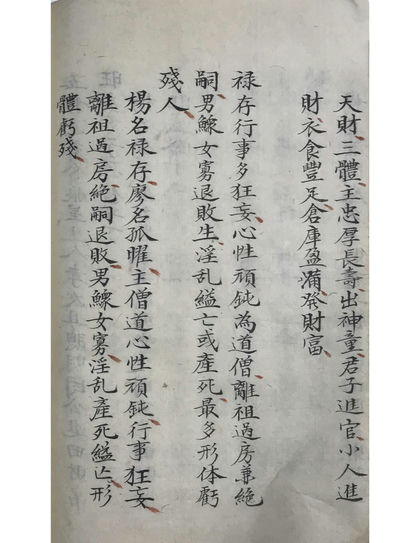 天財三體主忠厚長壽出神童君子進官小人進
財衣食豐足倉庫盈滿發財富
禄存行事多狂妄心性頑鈍為道僧離祖過房兼絶
嗣男鰥女寡退敗生淫乱縊亡或產死最多形体虧
殘人
楊名禄存廖名孤曜主僧道心性頑鈍行事狂妄
離祖過房絶嗣退敗男鰥女寡淫乱產死縊亡形
體虧殘